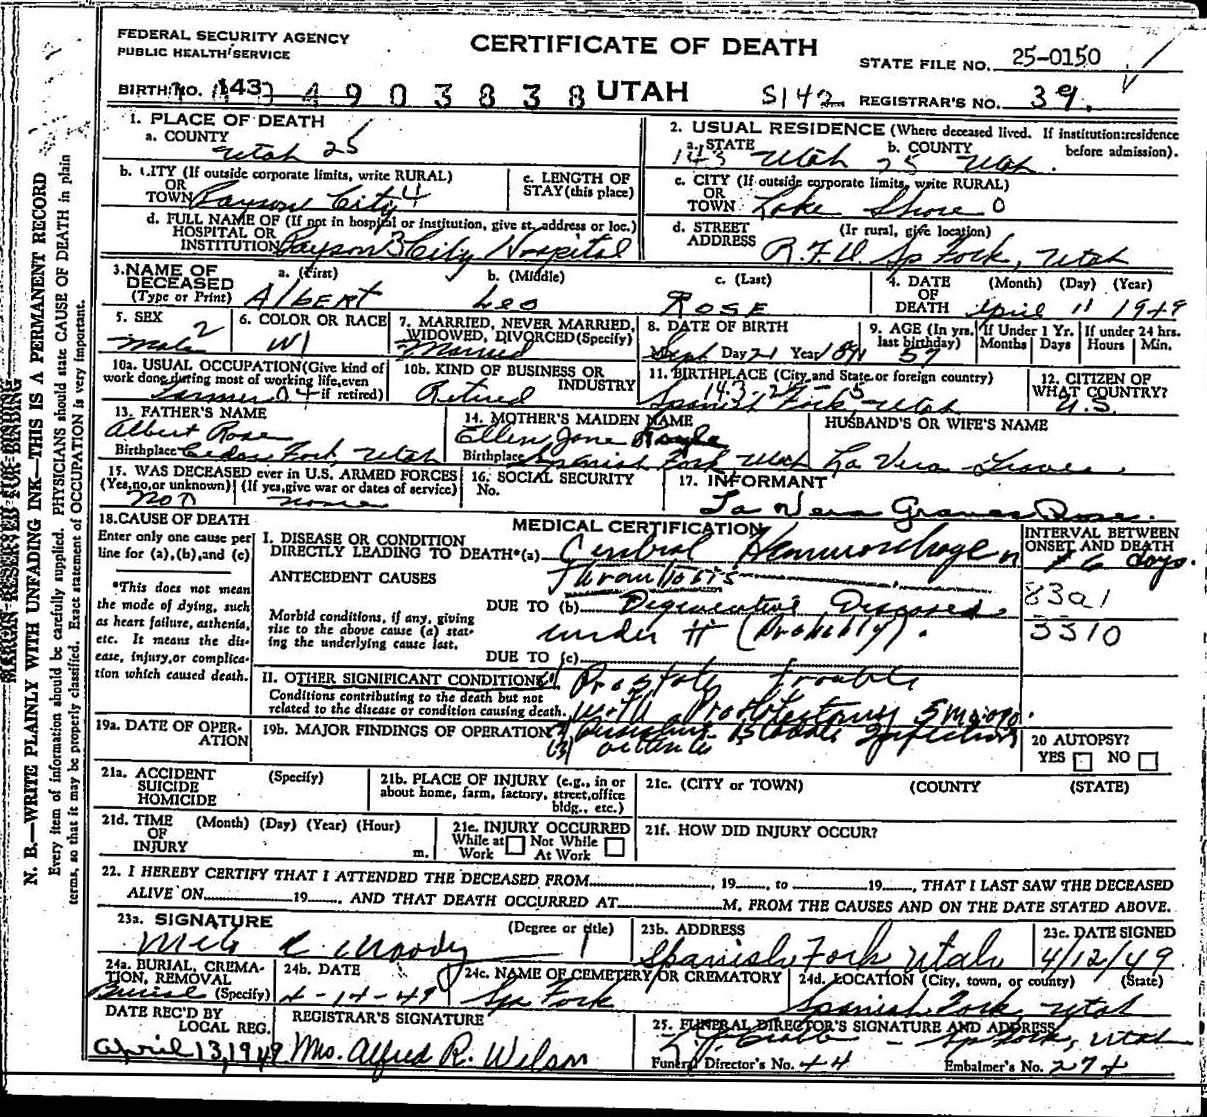 FEDERAL SECURITY AGENCY
PUBLIC HEALTH SERVICE
CERTIFICATE OF DEATH
STATE FILE NO. 25-0150
BIRTH NO. 143 4903838 UTAH S142 REGISTRAR'S NO. 39.
1. PLACE OF DEATH
a. COUNTY
Utah 25
2. USUAL RESIDENCE (Where deceased lived. If institution: residence before admission).
a. STATE b. COUNTY
143 Utah 25 Utah.
b. CITY (If outside corporate limits, write RURAL)
OR
TOWN Payson City 4
c. LENGTH OF
STAY (this place)
c. CITY (If outside corporate limits, write RURAL)
OR
TOWN Lake Shore 0
d. FULL NAME OF (If not in hospital or institution, give st. address or loc.)
HOSPITAL OR
INSTITUTION Payson 3 City Hospital
d. STREET (If rural, give location)
ADDRESS R.F.D Sp Fork, Utah
3. NAME OF
DECEASED
(Type or Print)
a. (First) b. (Middle) c. (Last)
Albert Leo Rose
4. DATE (Month) (Day) (Year)
OF
DEATH April 11 1949
5. SEX 2
Male
6. COLOR OR RACE
W1
7. MARRIED, NEVER MARRIED,
WIDOWED, DIVORCED (Specify)
Married
8. DATE OF BIRTH
Sept Day 21 Year 1891
9. AGE (In yrs. last birthday) 57
If Under 1 Yr. Months Days
If under 24 hrs. Hours Min.
10a. USUAL OCCUPATION (Give kind of
work done during most of working life, even
if retired)
Farmer 04
10b. KIND OF BUSINESS OR
INDUSTRY
Retired
11. BIRTHPLACE (City and State or foreign country)
143 25 5
Spanish Fork, Utah
12. CITIZEN OF
WHAT COUNTRY?
U.S.
13. FATHER'S NAME
Albert Rose
Birthplace Cedar Fork, Utah
14. MOTHER'S MAIDEN NAME
Ellen Jane
Birthplace Spanish Fork Utah
HUSBAND'S OR WIFE'S NAME
La Vera Graves.
15. WAS DECEASED ever in U.S. ARMED FORCES
(Yes, no, or unknown) (If yes, give war or dates of service)
No 0 none
16. SOCIAL SECURITY
No.
17. INFORMANT
La Vera Graves Rose.
18. CAUSE OF DEATH
Enter only one cause per
line for (a), (b), and (c)
*This does not mean
the mode of dying, such
as heart failure, asthenia,
etc. It means the dis-
ease, injury, or complica-
tion which caused death.
MEDICAL CERTIFICATION
I. DISEASE OR CONDITION
DIRECTLY LEADING TO DEATH*(a) Cerebral Hemmorrhage or
Thrombosis
INTERVAL BETWEEN
ONSET AND DEATH
6 days.
83a1
3310
ANTECEDENT CAUSES
Morbid conditions, if any, giving
rise to the above cause (a) stat-
ing the underlying cause last.
DUE TO (b) Degenerative Diseases
under # (Probably).
DUE TO (c)
II. OTHER SIGNIFICANT CONDITIONS
Conditions contributing to the death but not
related to the disease or condition causing death.
Prostate trouble
with 5 mo ago.
19a. DATE OF OPER-
ATION
19b. MAJOR FINDINGS OF OPERATION
Bladder Infection
20 AUTOPSY?
YES NO
21a. ACCIDENT (Specify)
SUICIDE
HOMICIDE
21b. PLACE OF INJURY (e.g., in or
about home, farm, factory, street, office
bldg., etc.)
21c. (CITY or TOWN) (COUNTY) (STATE)
21d. TIME (Month) (Day) (Year) (Hour)
OF
INJURY m.
21e. INJURY OCCURRED
While at Work Not While At Work
21f. HOW DID INJURY OCCUR?
22. I HEREBY CERTIFY THAT I ATTENDED THE DECEASED FROM, 19, to 19, THAT I LAST SAW THE DECEASED
ALIVE ON 19, AND THAT DEATH OCCURRED AT M. FROM THE CAUSES AND ON THE DATE STATED ABOVE.
23a. SIGNATURE (Degree or title)
Moody 1
23b. ADDRESS
Spanish Fork Utah
23c. DATE SIGNED
4/12/49
24a. BURIAL, CREMA-
TION, REMOVAL
Burial (Specify)
24b. DATE
4-14-49
24c. NAME OF CEMETERY OR CREMATORY
Sp. Fork
24d. LOCATION (City, town, or county) (State)
Spanish Fork, Utah
DATE REC'D BY
LOCAL REG.
April 13, 1949
REGISTRAR'S SIGNATURE
Mrs. Alfred R. Wilson
25. FUNERAL DIRECTOR'S SIGNATURE AND ADDRESS
- Sp Fork, Utah
Funeral Director's No. 44 Embalmer's No. 274
MARGIN RESERVED FOR BINDING
N. B.—WRITE PLAINLY WITH UNFADING INK—THIS IS A PERMANENT RECORD
Every item of information should be carefully supplied. PHYSICIANS should state CAUSE OF DEATH in plain
terms, so that it may be properly classified. Exact statement of OCCUPATION is very important.